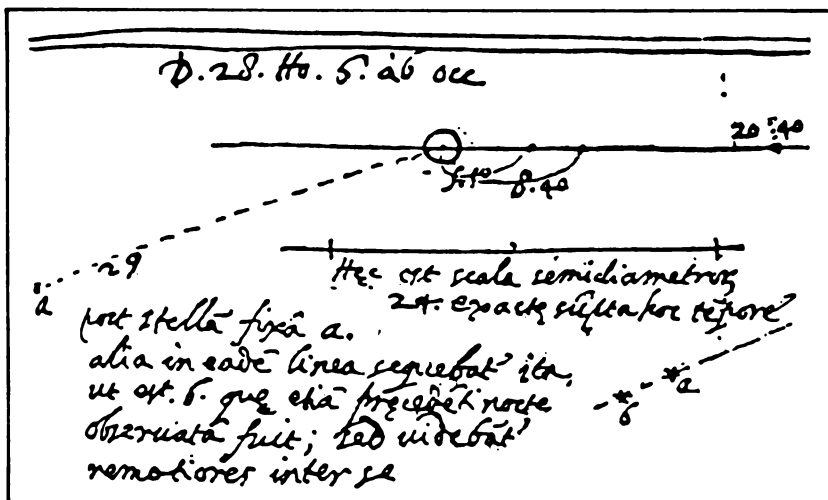 D. 28. Ho. 5. ab occ
20 40
5.10
8.40
29
a
Hęc est scala semidiametrorum
24. exactę sūpta hoc tēpore
post stellā fixā a.
alia in eadē linea sequebat' ita,
ut est. b. quę etiā pręcedēti nocte
obseruatā fuit; sed uidebāt'
remotiores inter se
a
b